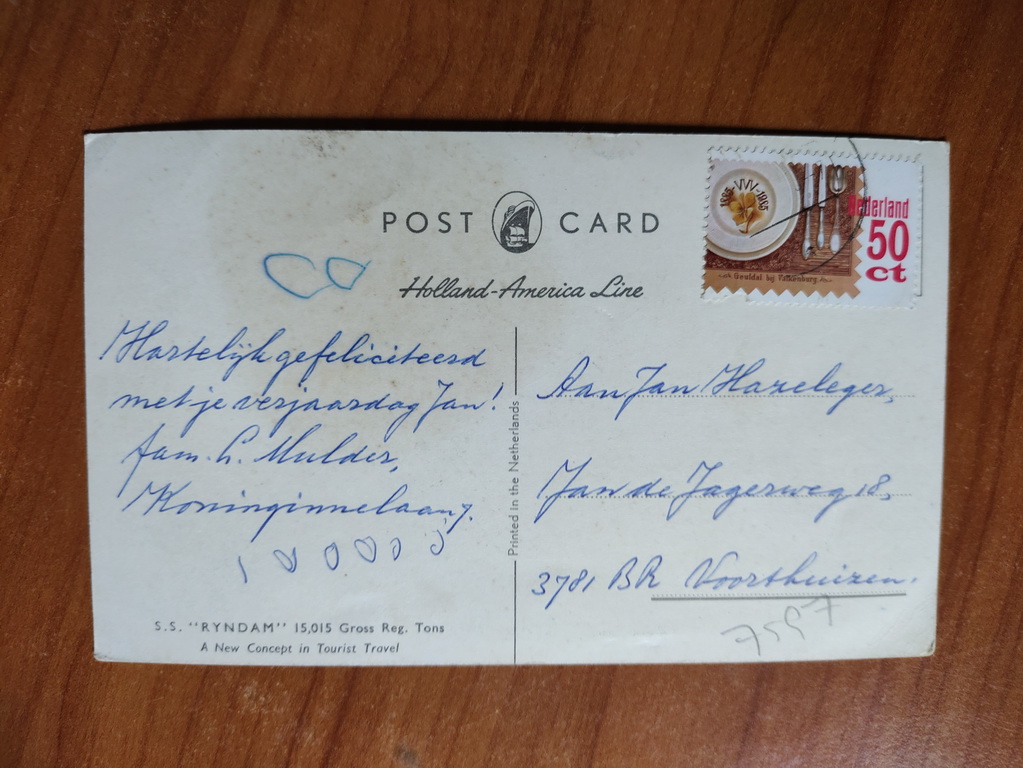 POST CARD
Holland-America Line
1885-VVV-1985
Nederland
50
ct
Gouldal bij Valkenburg
Hartelijk gefeliciteerd
met je verjaardag Jan!
fam. L. Mulder,
Koninginnelaan 7.
Printed in the Netherlands
Aan Jan Hazeleger,
Jan de Jagerweg 18,
3781 BR Voorthuizen.
7597
S.S. "RYNDAM" 15,015 Gross Reg. Tons
A New Concept in Tourist Travel